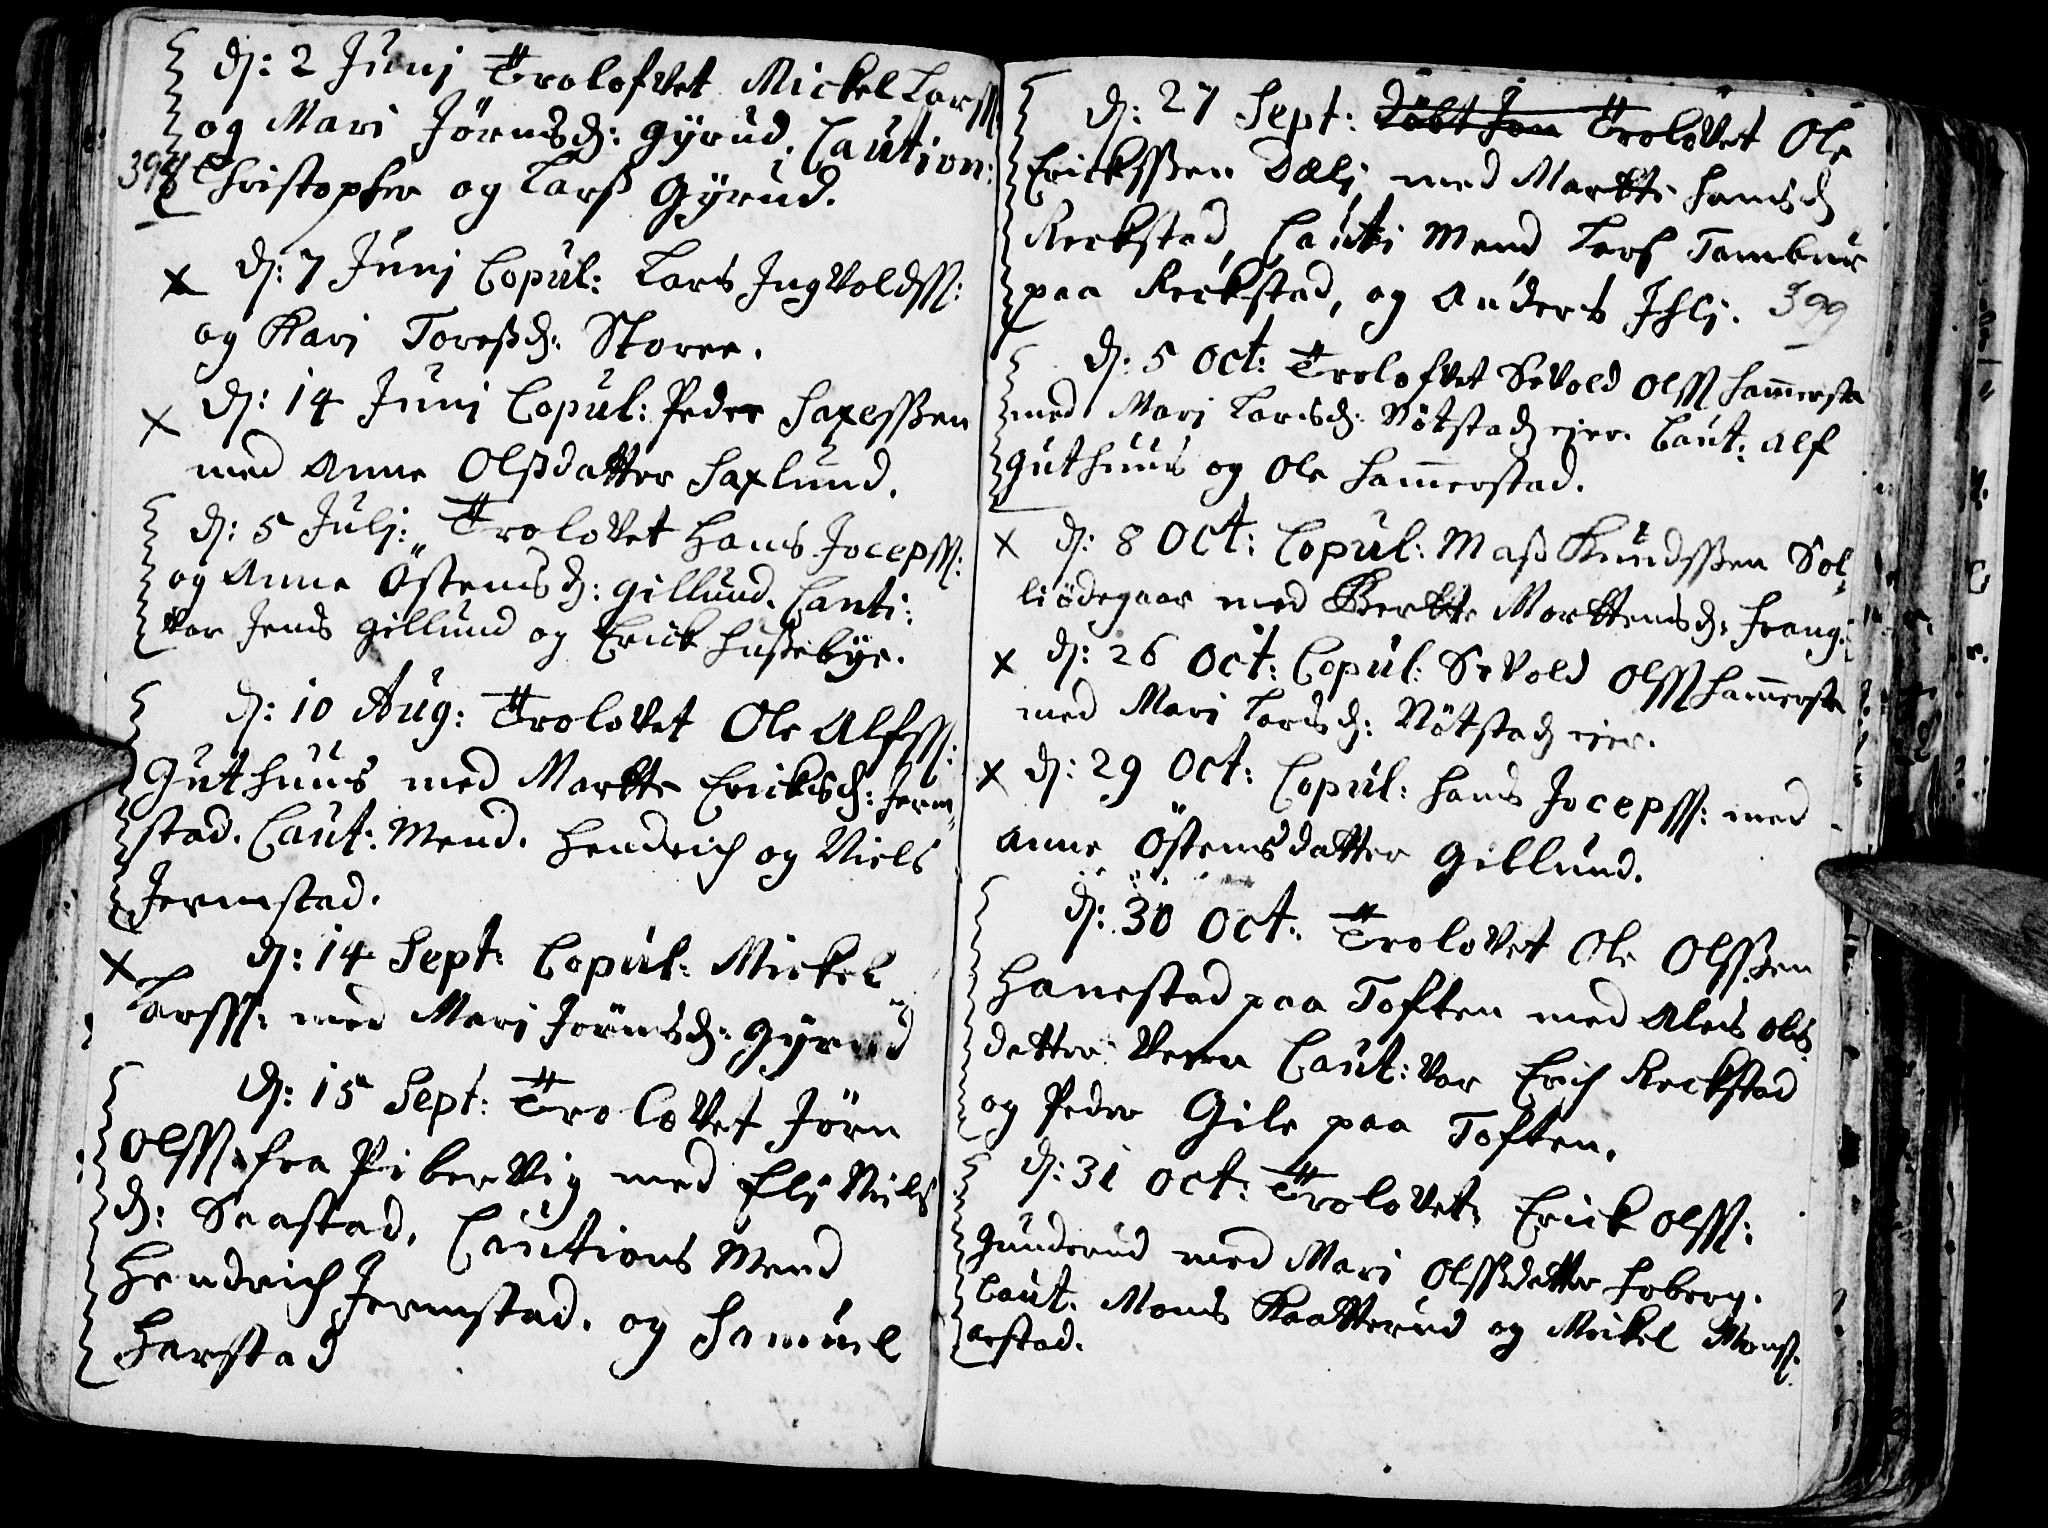 dj: 2 Junj Trolofvet Mickel Larsss.
og Mari Jörnsdj: Gyrud. Caution:
398
Christopher og Larss Gÿrud.
x dj: 7 Junj Copul: Lars Ingvoldss:
og Kari Toressdj: Storee.
x dj: 14 Juni Copul: Peder Saxessøen
med Anne Olssdatter Saxlund.
dj: 5 Julj: Trolovet Hans Jocepss:
og Anne Östensdj: Gillund. Cauti:
var Jens Gillund og Erick Hussebye.
dj: 10 Aug: Trolovet Ole Alfss:
Guthuus med Markte Ericksdj: Jerm„
stad. Caut: Mend. Hendrich og Niels
Jermstad.
x dj: 14 Sept: Copul: Mickel
Larsss: med Mari Jörnsdj: Gÿrud
dj: 15 Sept: Trolovet Jörn
Olsss: fra Pibervig med Eli Niels
dj: Saastad. Cautions Mend
Hendrich Jermstad. og Samuel
Harstad
dj: 27 Sept: Döbt Jon Trolovet Ole
Ericksssen Dælj med Markte Hansdj
Reckstad, Cauti Mend Lars Tambur
paa Reckstad, og Anders Ihlj. 399
dj: 5 Oct: Trolofvet Sivold Olss Hammersta
med Mari Larsdj: Nötstad eier. Caut: Alf
Guthuus og Ole Hammerstad.
x dj: 8 Oct: Copul: Mass Knudsssen Sol„
liödegaar med Berte Morttensdj: Frang:
x dj: 26 Oct: Copul: Sivold Olss Hammersta
med Mari Larsdj: Nötstad eier.
x dj: 29 Oct: Copul: Hans Jocepss: med
Anne Östensdatter Gillund.
dj: 30 Oct: Trolovet Ole Olsssen
Hanestad paa Toften med Aleis Ols
datter Caut: var Erich Reckstad
og Peder Gile paa Toften.
dj: 31 Oct: Trolovet: Erick Olsss:
Gunderud med Mari Olsssdatter Hoberg.
Caut. Mons Kaatterud og Mickel Monss.
arstad.